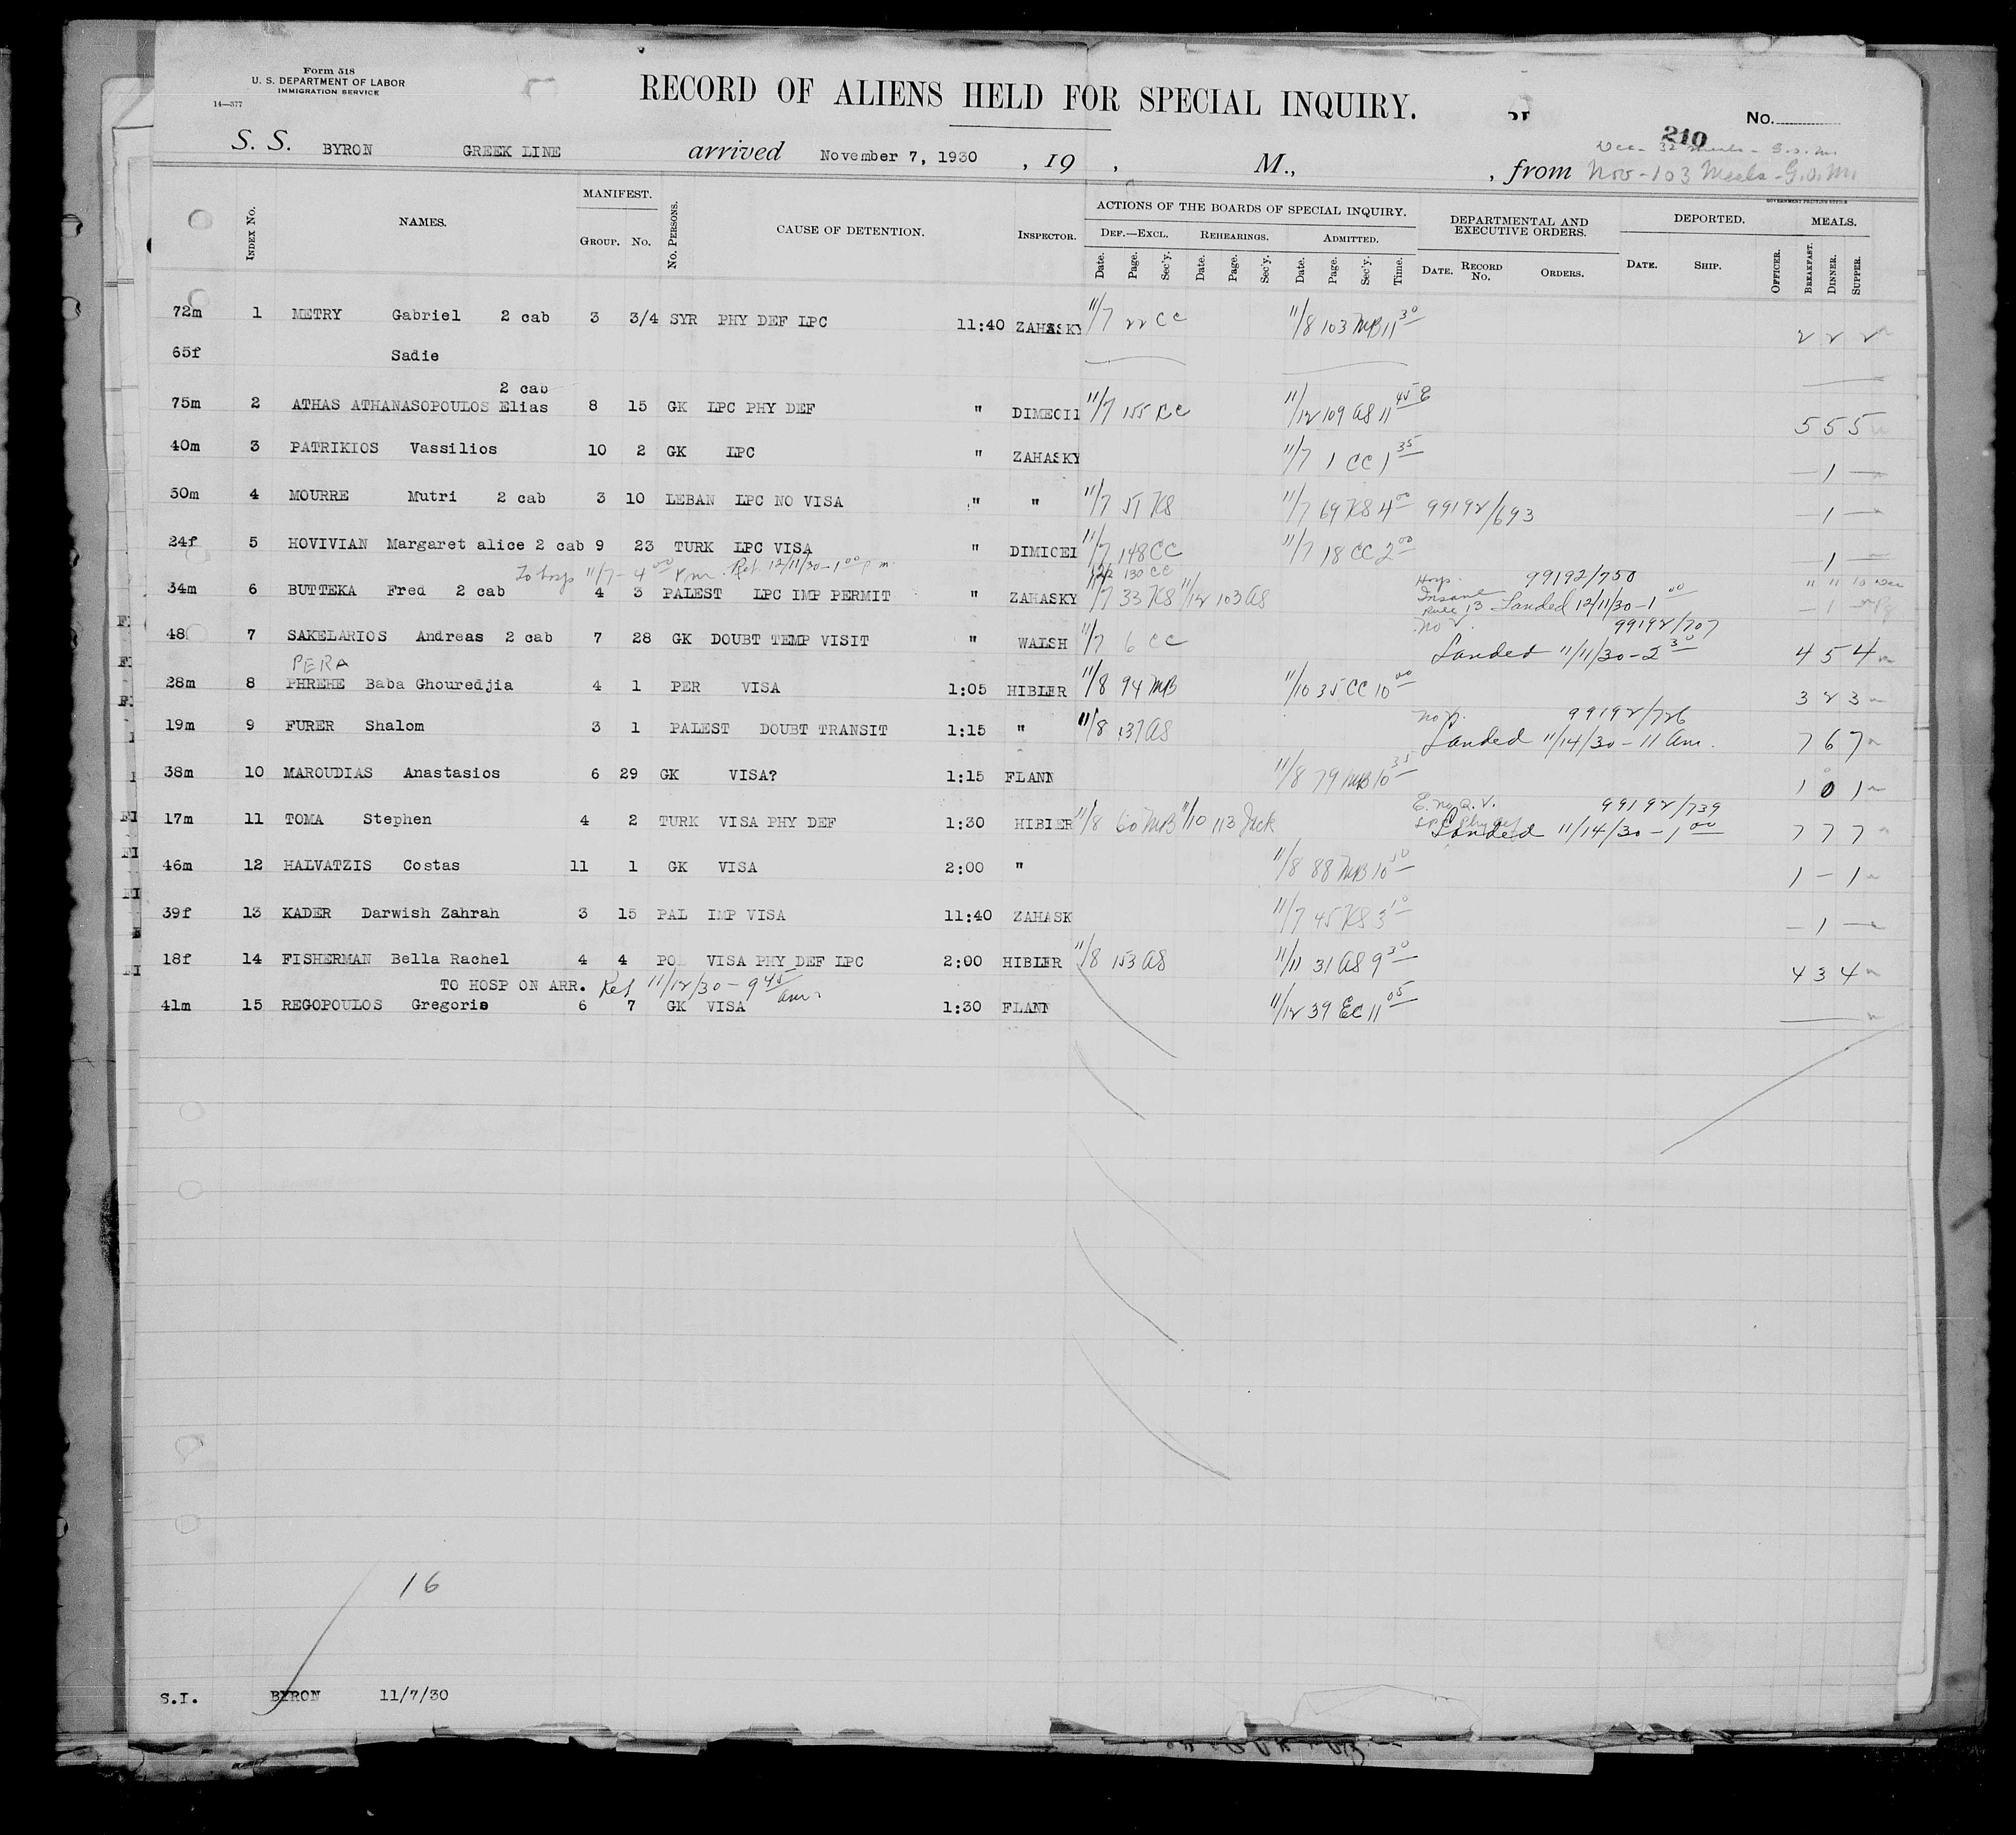 Form 518
U. S. DEPARTMENT OF LABOR
IMMIGRATION SERVICE
14—377
RECORD OF ALIENS HELD FOR SPECIAL INQUIRY.
No.
210
S. S. BYRON GREEK LINE arrived November 7, 1930 , 19 , M., , from
Dec - 32 meals - G.o.m.
Nov - 103 Meals - G.o.m.
GOVERNMENT PRINTING OFFICE
INDEX No. NAMES. MANIFEST. GROUP. No. No. PERSONS. CAUSE OF DETENTION. INSPECTOR. ACTIONS OF THE BOARDS OF SPECIAL INQUIRY. DEF.—EXCL. REHEARINGS. ADMITTED. DEPARTMENTAL AND EXECUTIVE ORDERS. DEPORTED. MEALS.
Date. Page. Sec'y. Date. Page. Sec'y. Date. Page. Sec'y. Time. DATE. RECORD No. ORDERS. DATE. SHIP. OFFICER. BREAKFAST. DINNER. SUPPER.
72m 1 METRY Gabriel 2 cab 3 3/4 SYR PHY DEF LPC 11:40 ZAHASKY 11/7 22 CC 11/8 103 MB 11 30 2 2 2
65f Sadie
2 cab
75m 2 ATHAS ATHANASOPOULOS Elias 8 15 GK LPC PHY DEF " DIMECII 11/7 155 CC 11/12 109 AS 11 45 5 5 5
40m 3 PATRIKIOS Vassilios 10 2 GK LPC " ZAHASKY 11/7 1 CC 1 35 — 1 —
50m 4 MOURRE Mutri 2 cab 3 10 LEBAN LPC NO VISA " " 11/7 51 KS 11/7 69 KS 4 00 99192/693 — 1 —
24f 5 HOVIVIAN Margaret alice 2 cab 9 23 TURK LPC VISA " DIMICEI 11/7 148 CC 11/7 18 CC 2 00 — 1 —
To hosp 11/7 - 4 00 Pm. Ret. 12/11/30 - 1 00 pm. 130 CC Hosp. 99192/750 " " 10 Dec
34m 6 BUTTEKA Fred 2 cab 4 3 PALEST LPC IMP PERMIT " ZAHASKY 11/7 33 KS 11/12 103 AS Insane Rule 13 Landed 12/11/30 - 1 00 — 1 —
48 7 SAKELARIOS Andreas 2 cab 7 28 GK DOUBT TEMP VISIT " WALSH 11/7 6 CC No V. 99192/707 Landed 11/11/30 - 2 30 4 5 4
PERA
28m 8 PHREHE Baba Ghouredjia 4 1 PER VISA 1:05 HIBLER 11/8 94 MB 11/10 35 CC 10 00 3 2 3
19m 9 FURER Shalom 3 1 PALEST DOUBT TRANSIT 1:15 " 11/8 137 AS 99192/726 Landed 11/14/30 - 11 am. 7 6 7
38m 10 MAROUDIAS Anastasios 6 29 GK VISA? 1:15 FLANN 11/8 79 MB 10 35 1 0 1
17m 11 TOMA Stephen 4 2 TURK VISA PHY DEF 1:30 HIBIER 11/8 60 MB 11/10 113 Jack E. no Q. V. LPC Phy def 99192/739 Landed 11/14/30 - 1 00 7 7 7
46m 12 HALVATZIS Costas 11 1 GK VISA 2:00 " 11/8 88 MB 10 50 1 — 1
39f 13 KADER Darwish Zahrah 3 15 PAL IMP VISA 11:40 ZAHASK 11/7 45 KS 3 10 — 1 —
18f 14 FISHERMAN Bella Rachel 4 4 POL VISA PHY DEF LPC 2:00 HIBLER 11/8 153 AS 11/11 31 AS 9 30 4 3 4
TO HOSP ON ARR. Ret 11/12/30 - 9 45 am.
41m 15 REGOPOULOS Gregoris 6 7 GK VISA 1:30 FLANN 11/12 39 EC 11 05
16
S.I. BYRON 11/7/30